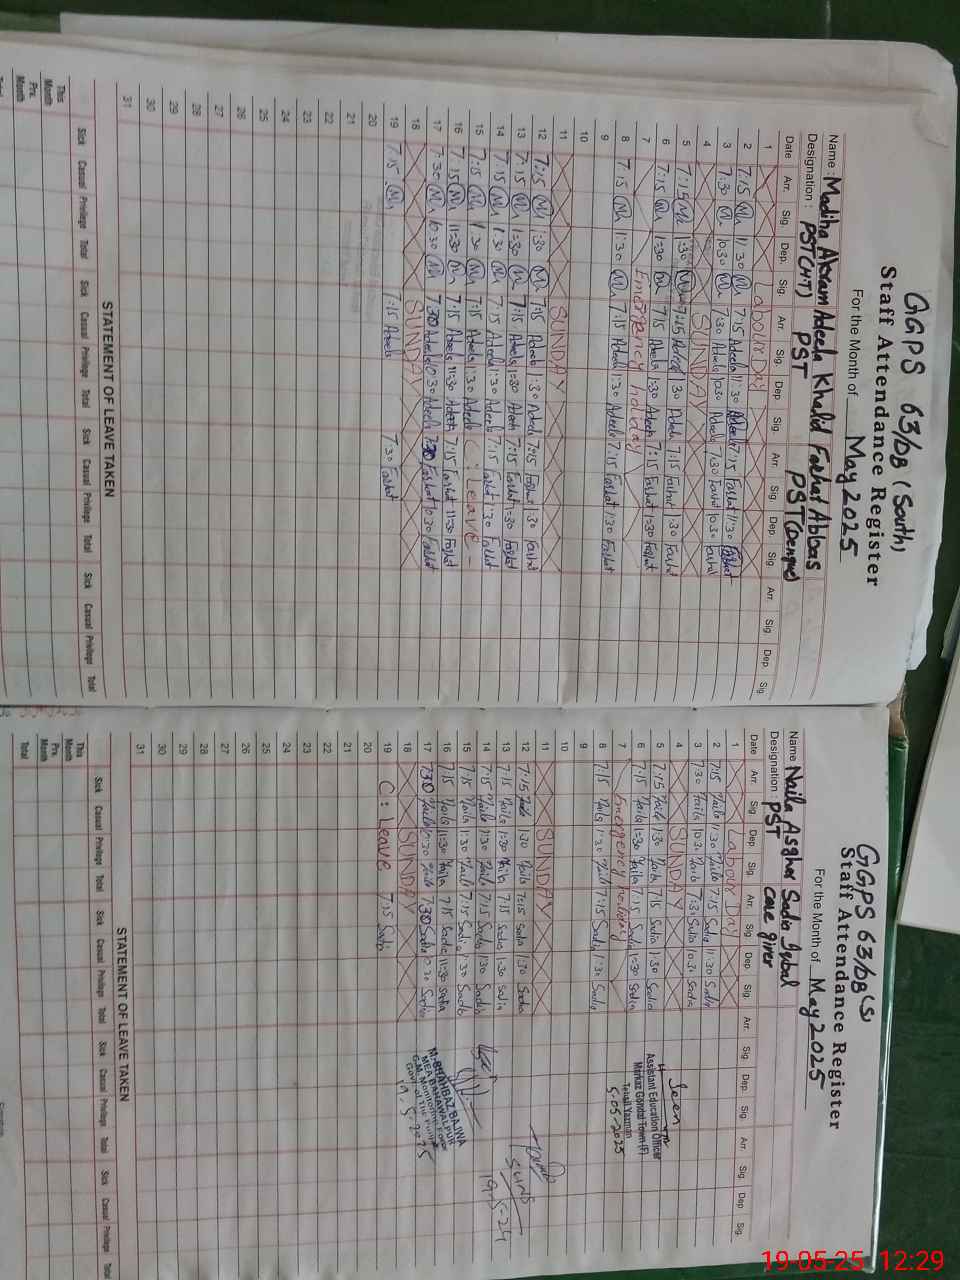 GGPS 63/DB (South)
Staff Attendance Register
For the Month of May 2025
Name : Madiha Akram Adeela Khalid Farhat Abbas
Designation : PST(HT) PST PST(Dengue)
Date Arr. Sig. Dep. Sig. Arr. Sig. Dep. Sig. Arr. Sig. Dep. Sig. Arr. Sig. Dep. Sig.
1 Labour Day
2 7:15 11:30 7:15 Adeela 11:30 Adeela 7:15 Farhat 11:30 Farhat
3 7:30 10:30 7:30 Adeela 10:30 Adeela 7:30 Farhat 10:30 Farhat
4 SUNDAY
5 7:15 1:30 7:15 Adeela 1:30 Adeela 7:15 Farhat 1:30 Farhat
6 7:15 1:30 7:15 Adeela 1:30 Adeela 7:15 Farhat 1:30 Farhat
7 Emergency holiday
8 7:15 1:30 7:15 Adeela 1:30 Adeela 7:15 Farhat 1:30 Farhat
9
10
11 SUNDAY
12 7:15 1:30 7:15 Adeela 1:30 Adeela 7:15 Farhat 1:30 Farhat
13 7:15 1:30 7:15 Adeela 1:30 Adeela 7:15 Farhat 1:30 Farhat
14 7:15 1:30 7:15 Adeela 1:30 Adeela 7:15 Farhat 1:30 Farhat
15 7:15 1:30 7:15 Adeela 1:30 Adeela C: Leave -
16 7:15 11:30 7:15 Adeela 11:30 Adeela 7:15 Farhat 11:30 Farhat
17 7:30 10:30 7:30 Adeela 10:30 Adeela 7:30 Farhat 10:30 Farhat
18 SUNDAY
19 7:15 7:15 Adeela 7:30 Farhat
20
21
22
23
24
25
26
27
28
29
30
31
STATEMENT OF LEAVE TAKEN
Sick Casual Privilege Total Sick Casual Privilege Total Sick Casual Privilege Total Sick Casual Privilege Total
This Month
Prv. Month
Total
GGPS 63/DB(S)
Staff Attendance Register
For the Month of May 2025
Name Naila Asghar Sadia Iqbal
Designation : PST care giver
Date Arr. Sig. Dep. Sig. Arr. Sig. Dep. Sig. Arr. Sig. Dep. Sig. Arr. Sig. Dep. Sig.
1 Labour Day
2 7:15 Naila 11:30 Naila 7:15 Sadia 11:30 Sadia
3 7:30 Naila 10:30 Naila 7:30 Sadia 10:30 Sadia
4 SUNDAY
5 7:15 Naila 1:30 Naila 7:15 Sadia 1:30 Sadia
6 7:15 Naila 1:30 Naila 7:15 Sadia 1:30 Sadia
7 Emergency holiday
8 7:15 Naila 1:30 Naila 7:15 Sadia 1:30 Sadia
9
10
11 SUNDAY
12 7:15 Naila 1:30 Naila 7:15 Sadia 1:30 Sadia
13 7:15 Naila 1:30 Naila 7:15 Sadia 1:30 Sadia
14 7:15 Naila 1:30 Naila 7:15 Sadia 1:30 Sadia
15 7:15 Naila 1:30 Naila 7:15 Sadia 1:30 Sadia
16 7:15 Naila 11:30 Naila 7:15 Sadia 11:30 Sadia
17 7:30 Naila 10:30 Naila 7:30 Sadia 10:30 Sadia
18 SUNDAY
19 C: Leave 7:15 Sadia
20
21
22
23
24
25
26
27
28
29
30
31
Seen
Assistant Education Officer
Markaz Gondal Town (F)
Tehsil Yazman
5-05-2025
M. SHAHBAZ BAJWA
MEA BAHAWALPUR
C.M. Monitoring Force
Govt of The Punjab
19-5-2025
STATEMENT OF LEAVE TAKEN
Sick Casual Privilege Total Sick Casual Privilege Total Sick Casual Privilege Total Sick Casual Privilege Total
This Month
Prv. Month
Total
19-05-25 12:29